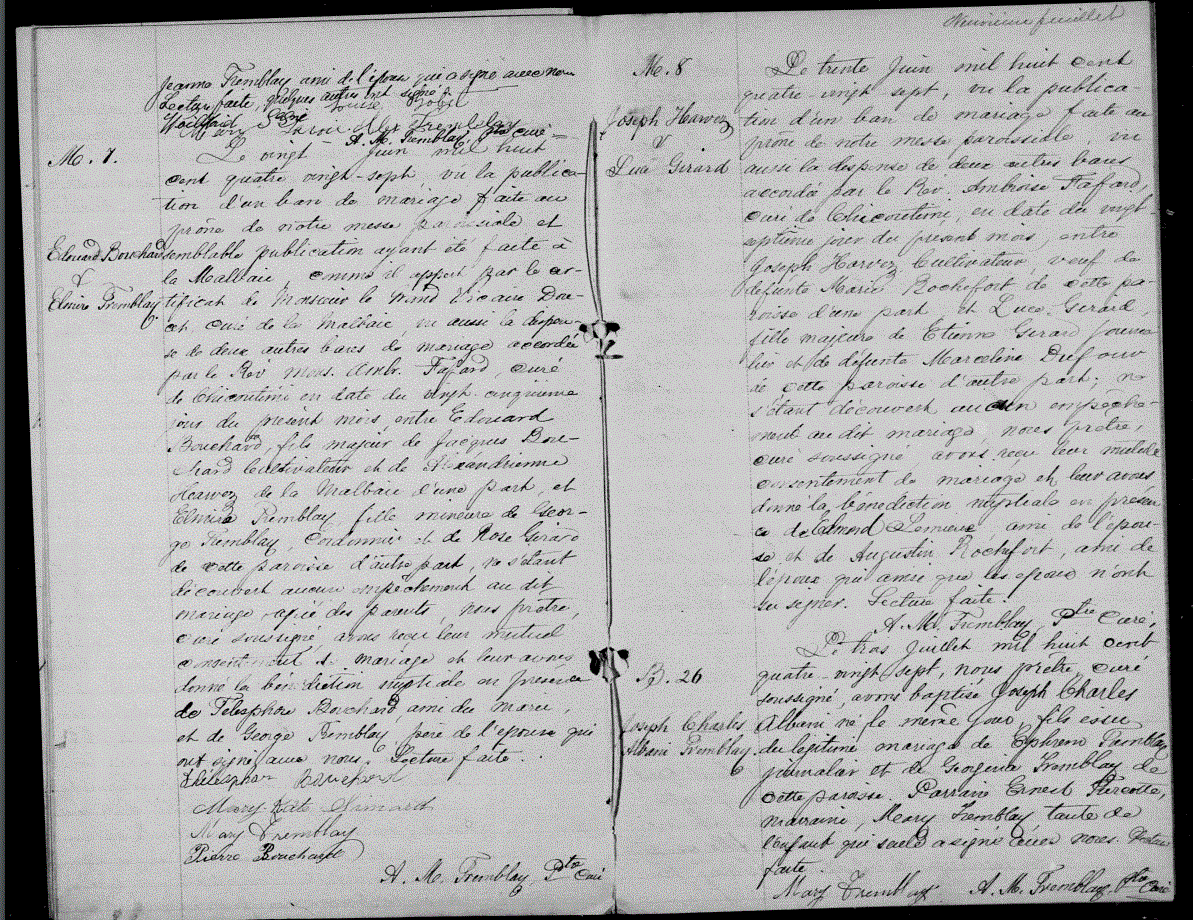 Neuvième feuillet
Jeanne Tremblay amie de l'épouse qui a signé avec nous
Lecture faite, quelques autres ont signé
Alex Tremblay
A. M. Tremblay, Ptre Curé
M. 7.
Edouard Bouchard
&
Elmire Tremblay
Le vingt Juin mil huit
cent quatre vingt-sept vu la publica-
tion d'un ban de mariage faite au
prône de notre messe paroissiale et
semblable publication ayant été faite à
la Malbaie comme il appert par le cer-
tificat de Monsieur le Grand Vicaire Dou-
cet, curé de la Malbaie, vu aussi la dispen-
se de deux autres bans de mariage accordée
par le Rév. Mons. Ambr. Fafard, curé
de Chicoutimi en date du vingt-cinquième
jour du présent mois, entre Edouard
Bouchard, fils majeur de Jacques Bou-
chard Cultivateur et de Alexandrienne
Heavez de la Malbaie d'une part, et
Elmire Tremblay, fille mineure de Geor-
ge Tremblay, Cordonnier et de Rose Girard
de cette paroisse d'autre part, ne s'étant
découvert aucun empêchement au dit
mariage, agré des parents, nous prêtre,
curé soussigné, avons reçu leur mutuel
consentement de mariage et leur avons
donné la bénédiction nuptiale en présence
de Télesphore Bouchard, ami du marié,
et de George Tremblay, père de l'épouse qui
ont signé avec nous. Lecture faite.
Thelesphor Bouchard
Mary Kate Simard
Mary Tremblay
Pierre Bouchard
A. M. Tremblay, Ptre Curé
M. 8
Joseph Harvez
&
Luce Girard
Le trente Juin mil huit cent
quatre-vingt sept, vu la publica-
tion d'un ban de mariage faite au
prône de notre messe paroissiale vu
aussi la dispense de deux autres bans
accordée par le Rév. Ambroise Fafard,
curé de Chicoutimi, en date du vingt-
septième jour du présent mois, entre
Joseph Harvez Cultivateur, veuf de
défunte Marie Rochefort de cette pa-
roisse d'une part et Luce Girard,
fille majeure de Etienne Girard Journa-
lier et de défunte Marceline Dufour
de cette paroisse d'autre part; ne
s'étant découvert aucun empêche-
ment au dit mariage, nous prêtre,
curé soussigné avons reçu leur mutuel
consentement de mariage et leur avons
donné la bénédiction nuptiale en présen-
ce de Edmond Lemieux, ami de l'épou-
se et de Augustin Rochefort, ami de
l'époux qui ainsi que les époux n'ont
su signer. Lecture faite.
A. M. Tremblay, Ptre Curé,
B. 26
Joseph Charles
Albani Tremblay
Le trois Juillet mil huit cent
quatre-vingt sept, nous prêtre, curé
soussigné, avons baptisé Joseph Charles
Albani né le même jour, fils issu
du légitime mariage de Ephrem Tremblay
journalier et de Georgina Tremblay de
cette paroisse. Parrain Ernest Turcotte,
marraine, Mary Tremblay tante de
l'enfant qui seule a signé avec nous. Lecture
faite.
Mary Tremblay A. M. Tremblay, Ptre Curé